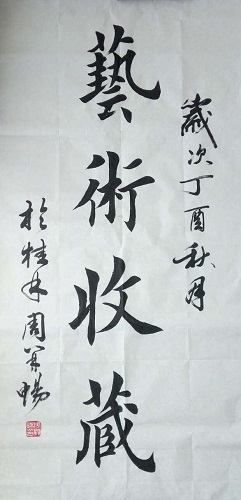 歲次丁酉秋月
藝術收蔵
於桂林周美暢